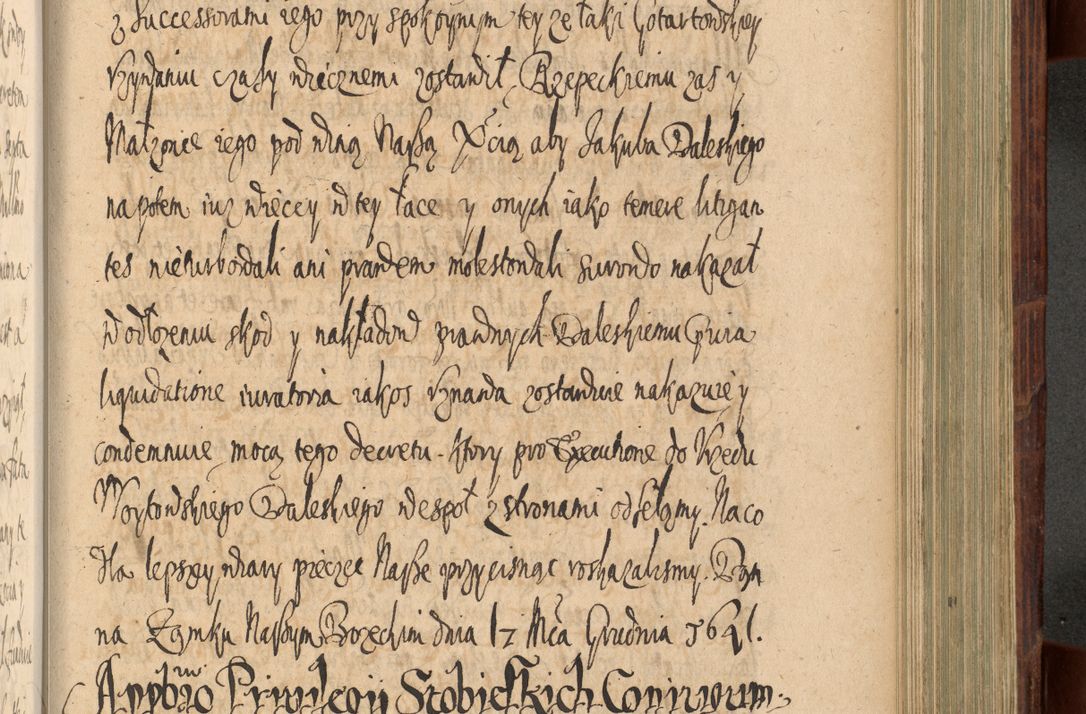 z Successorami iego przy spokoynym tey ze łąki Gotartowskiey
Vzywaniu czasy wiecznemi zostawił, Rzepeckiemu zas y
Małzonce iego pod winą Naszą Xcią aby Jakuba Daleskiego
na potem iuz więcey w tey łące y onych iako temere litigan
tes nieturbowali ani prawem molestowali surowo nakazał
W odłozeniu skod y nakładow prawnych Daleskiemu
liquidatione iuratoria iakos Vznawa zostawuie nakazuię y
condemnuie mocą tego decretu. ktory pro Executione do Vrzędu
Woytowskiego Daleskiego wespoł z stronami odsełamy. Na co
dla lepszey wiary pieczęc Nasze przycisnąc roskazalismy. Dan
na Zamku Naszym Bozęckim dnia 17 Mca Grudnia 1641.
Privilegii Stobieskich Coniugum.